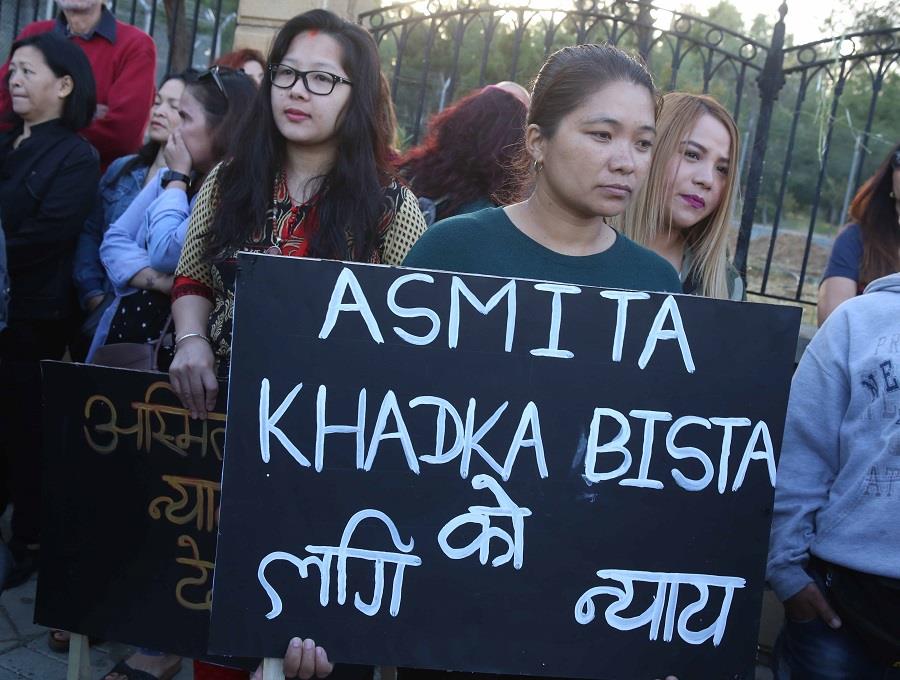 ASMITA
KHADKA BISTA
को
लगि न्याय
अस्मित
न्याय
दे